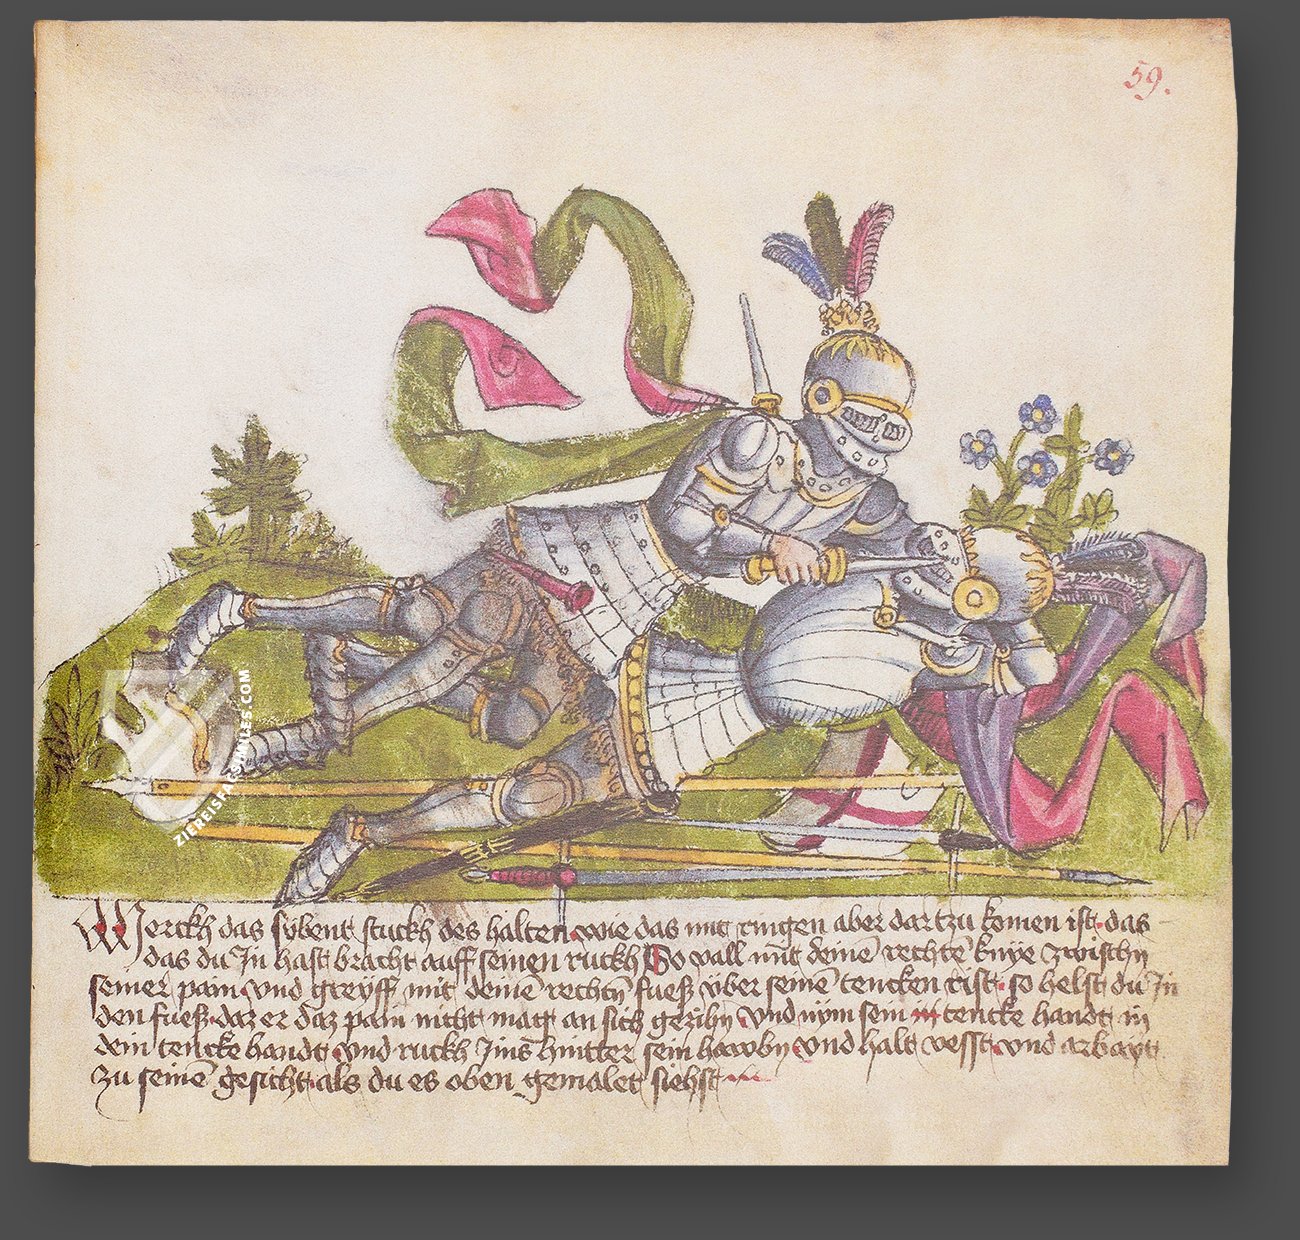 59.
Merckh das sybent stuckh des halten wie das mit ringen aber dartzu komen ist das
das du In hast bracht auff seinen ruckh So vall mit deinē rechtē knÿe zwischn
seinen pain vnd greÿff mit deinē rechtn fuesß vber seinē tencken rist so helst du In
den fuesß daz er daz pain nicht mag an sich geziehn vnd nÿm sein tencke handt in
dein tencke handt vnd ruckh Ims hintter sein hawbn vnd halt vesst vnd arbayt
zu seinē gesicht als du es oben gemalet siehst
ZIEREISFACSIMILES.COM